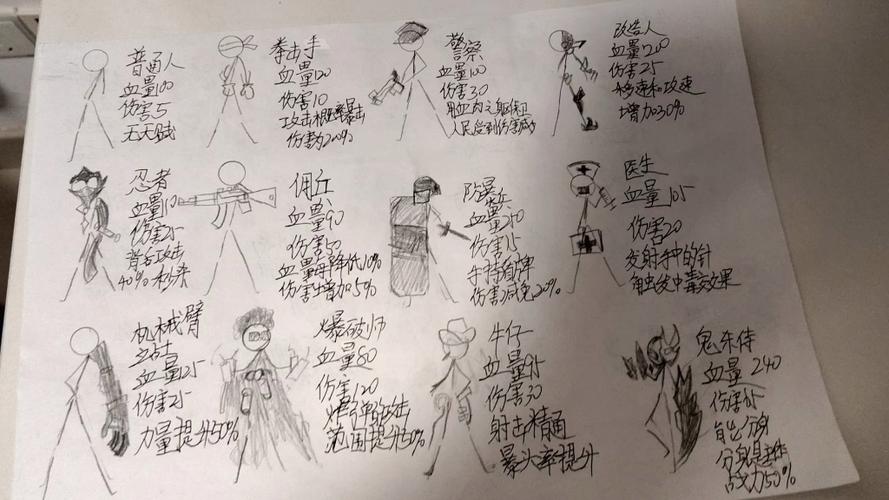 普通人
血量100
伤害5
无天赋
拳击手
血量120
伤害10
攻击概率暴击
伤害为200%
警察
血量100
伤害30
用血肉之躯保卫
人民受到伤害减少
改造人
血量200
伤害25
移速和攻速
增加30%
忍者
血量110
伤害25
背后攻击
40%秒杀
佣兵
血量90
伤害50
血量每降低10%
伤害增加5%
防暴兵
血量250
伤害15
手持盾牌
伤害减免20%
医生
血量105
伤害20
发射手中的针
触发中毒效果
机械臂
战士
血量125
伤害25
力量提升50%
爆破师
血量80
伤害120
炸弹的攻击
范围提升50%
牛仔
血量95
伤害30
射击精通
暴头率提升
鬼东侍
血量240
伤害65
自出分身
分身是本体
战力50%